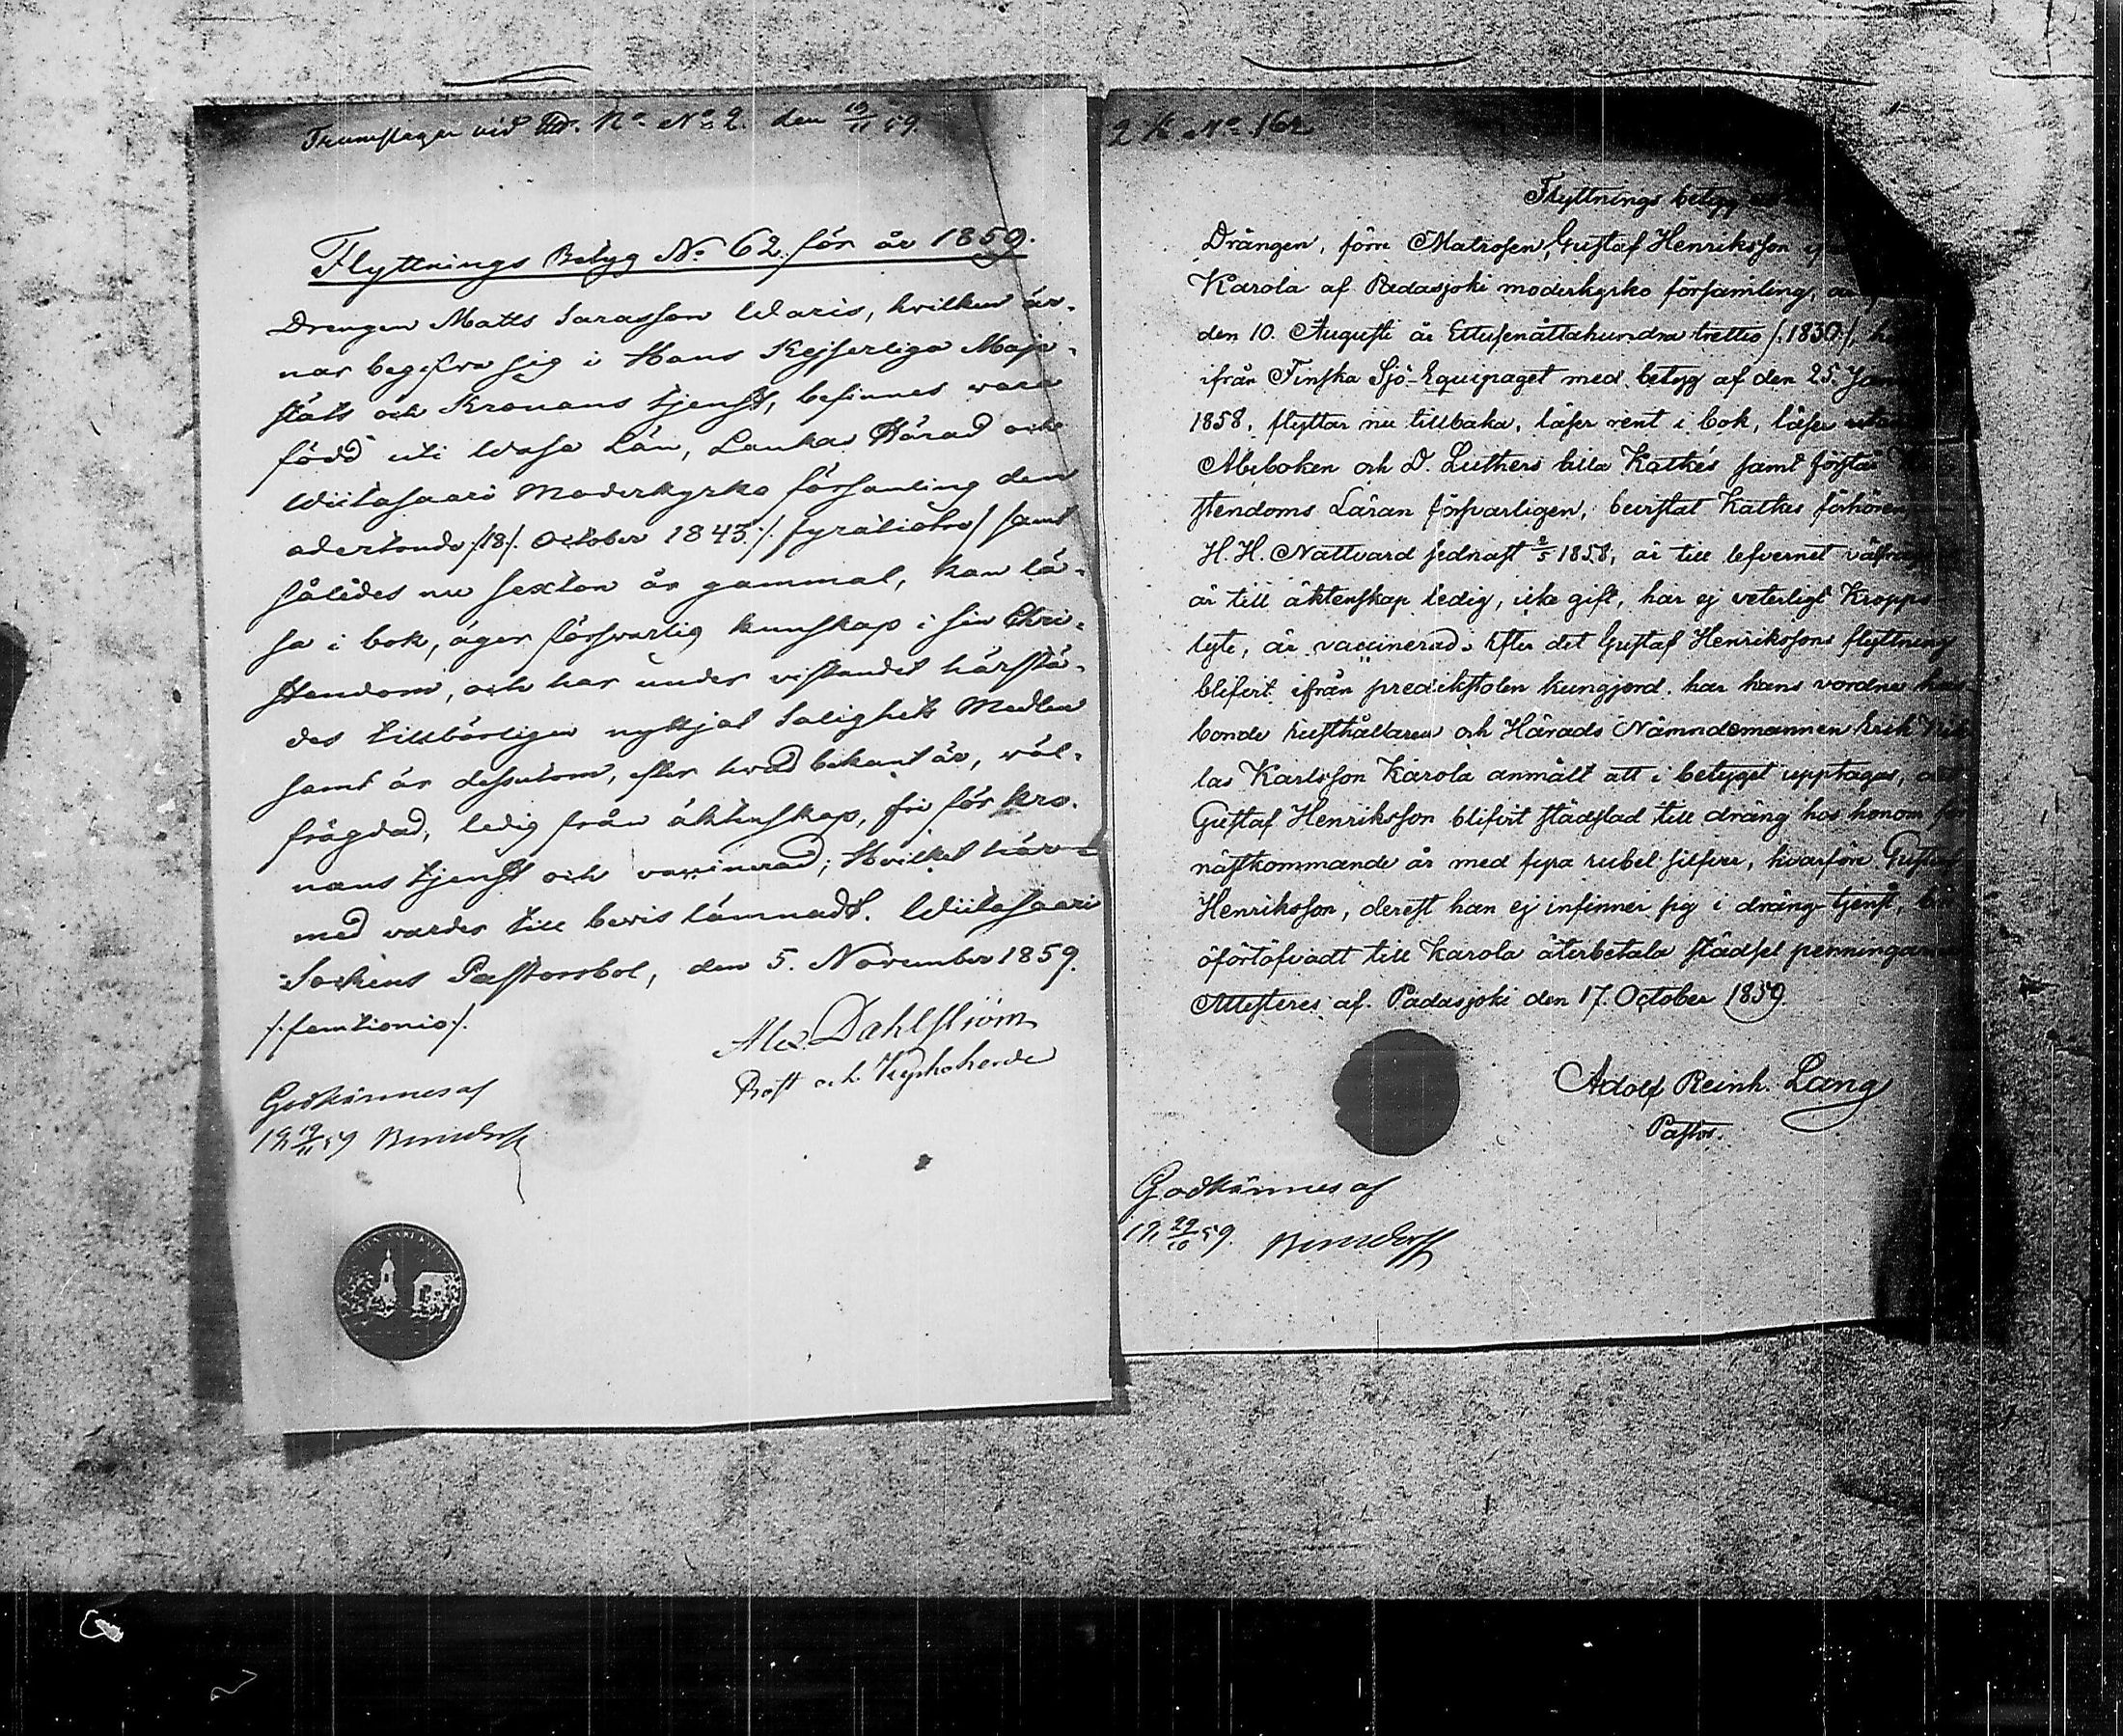 Trumslagar vid No. No. 2. den 19/11 59.
Flyttnings Betyg No. 62. för år 1859.
Drengen Matts Sarasson Waris, hvilken är-
nar begifva sig i Hans Kejserliga Maje-
stäts och Kronans tjenst, befinnes vara
född uti Wasa Län, Laukas Härad och
Wiitasaari Moderkyrko församling den
adertonde /:18:/ October 1843 /: fyratiotre / samt
således nu sexton år gammal, kan lä-
sa i bok, äger försvarlig kunskap i sin Chri-
stendom, och har under vistandet härstä-
des tillbörligen nyttjat Salighets Medlen
samt är dessutom, efter hvad bekant är, väl-
frägdad, ledig från äktenskap, fri för kro-
nans tjenst och vaccinerad; Hvilket här-
med varder till bevis lämnadt. Wiitasaari
Sockens Pastorsbol, den 5. November 1859.
/: femtionio :/.
Alex. Dahlström
Prost och Kyrkoherde
Godkännes af
19/11 59
2 K No. 162
Flyttnings betyg
Drängen, förre Matrosen, Gustaf Henriksson
Karola af Padasjoki moderkyrko församling,
den 10. Augusti år Ettusenåttahundra trettio /:1830:/,
ifrån Finska Sjö-Equipaget med betyg af den 25.
1858, flyttar nu tillbaka, läser rent i bok, läser
Abcboken och D. Luthers lilla Katkés samt förstår
stendoms Läran försvarligen, bevistat Katkes förhören
H. H. Nattvard sednast 2/5 1858, är till lefvernet
är till äktenskap ledig, icke gift, har ej veterligt Kropps
lyte, är vaccinerad. Efter det Gustaf Henrikssons flyttning
blifvit ifrån predikstolen kungjord, har hans vordne
bonde Rusthållaren och Härads Nämndemannen Erik
las Karlsson Karola anmält att i betyget upptagas,
Gustaf Henriksson blifvit städslad till dräng hos honom för
nästkommande år med fyra rubel silfver, hvarföre Gustaf
Henriksson, derest han ej infinner sig i dräng-tjenst,
oförtöfvadt till Karola återbetala städsel penningarne
Attesteres af. Padasjoki den 17. October 1859.
Adolf Reinh. Lang
Pastor.
Godkännes af
29/10 59.